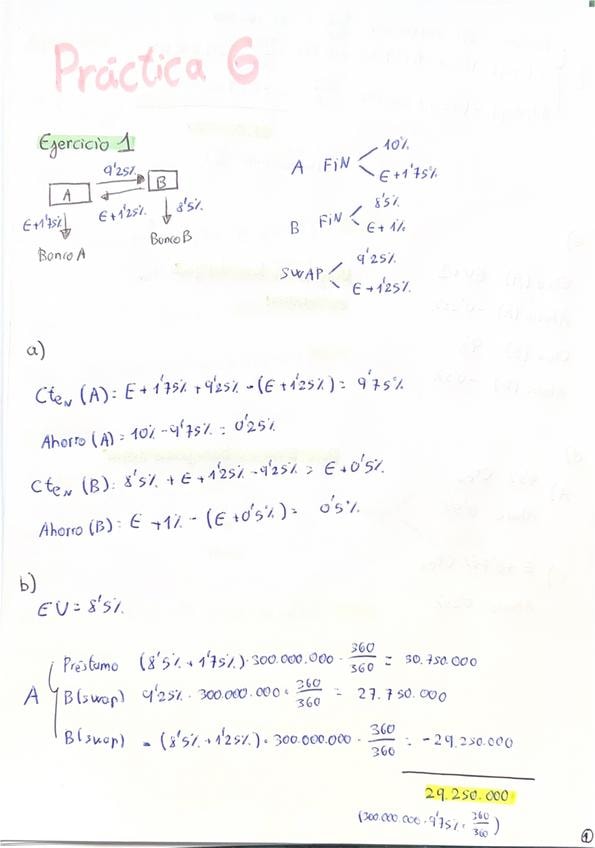 Práctica 6
Ejercicio 1
9'25%
A
B
E+1'75%
E+1'25%
8'5%
Banco A
Banco B
A FIN
10%
E+1'75%
B FIN
8'5%
E+1%
SWAP
9'25%
E+1'25%
a)
Cte_N (A): E+1'75% + 9'25% - (E+1'25%) = 9'75%
Ahorro (A) = 10% - 9'75% = 0'25%
Cte_N (B): 8'5% + E+1'25% - 9'25% = E+0'5%
Ahorro (B): E+1% - (E+0'5%) = 0'5%
b)
EU = 8'5%
A
Préstamo (8'5% + 1'75%) · 300.000.000 · 360/360 = 30.750.000
B (swap) 9'25% · 300.000.000 · 360/360 = 27.750.000
B (swap) = (8'5% + 1'25%) · 300.000.000 · 360/360 = -29.250.000
29.250.000
(300.000.000 · 9'75% · 360/360)
1